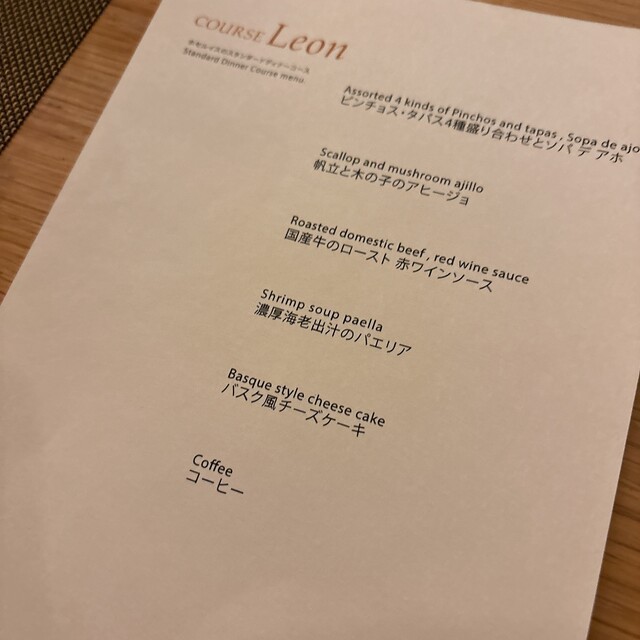 COURSE Leon
ホセルイスのスタンダードディナーコース
Standard Dinner Course menu
Assorted 4 kinds of Pinchos and tapas , Sopa de ajo
ピンチョス・タパス4種盛り合わせとソパ デ アホ
Scallop and mushroom ajillo
帆立と木の子のアヒージョ
Roasted domestic beef , red wine sauce
国産牛のロースト 赤ワインソース
Shrimp soup paella
濃厚海老出汁のパエリア
Basque style cheese cake
バスク風チーズケーキ
Coffee
コーヒー